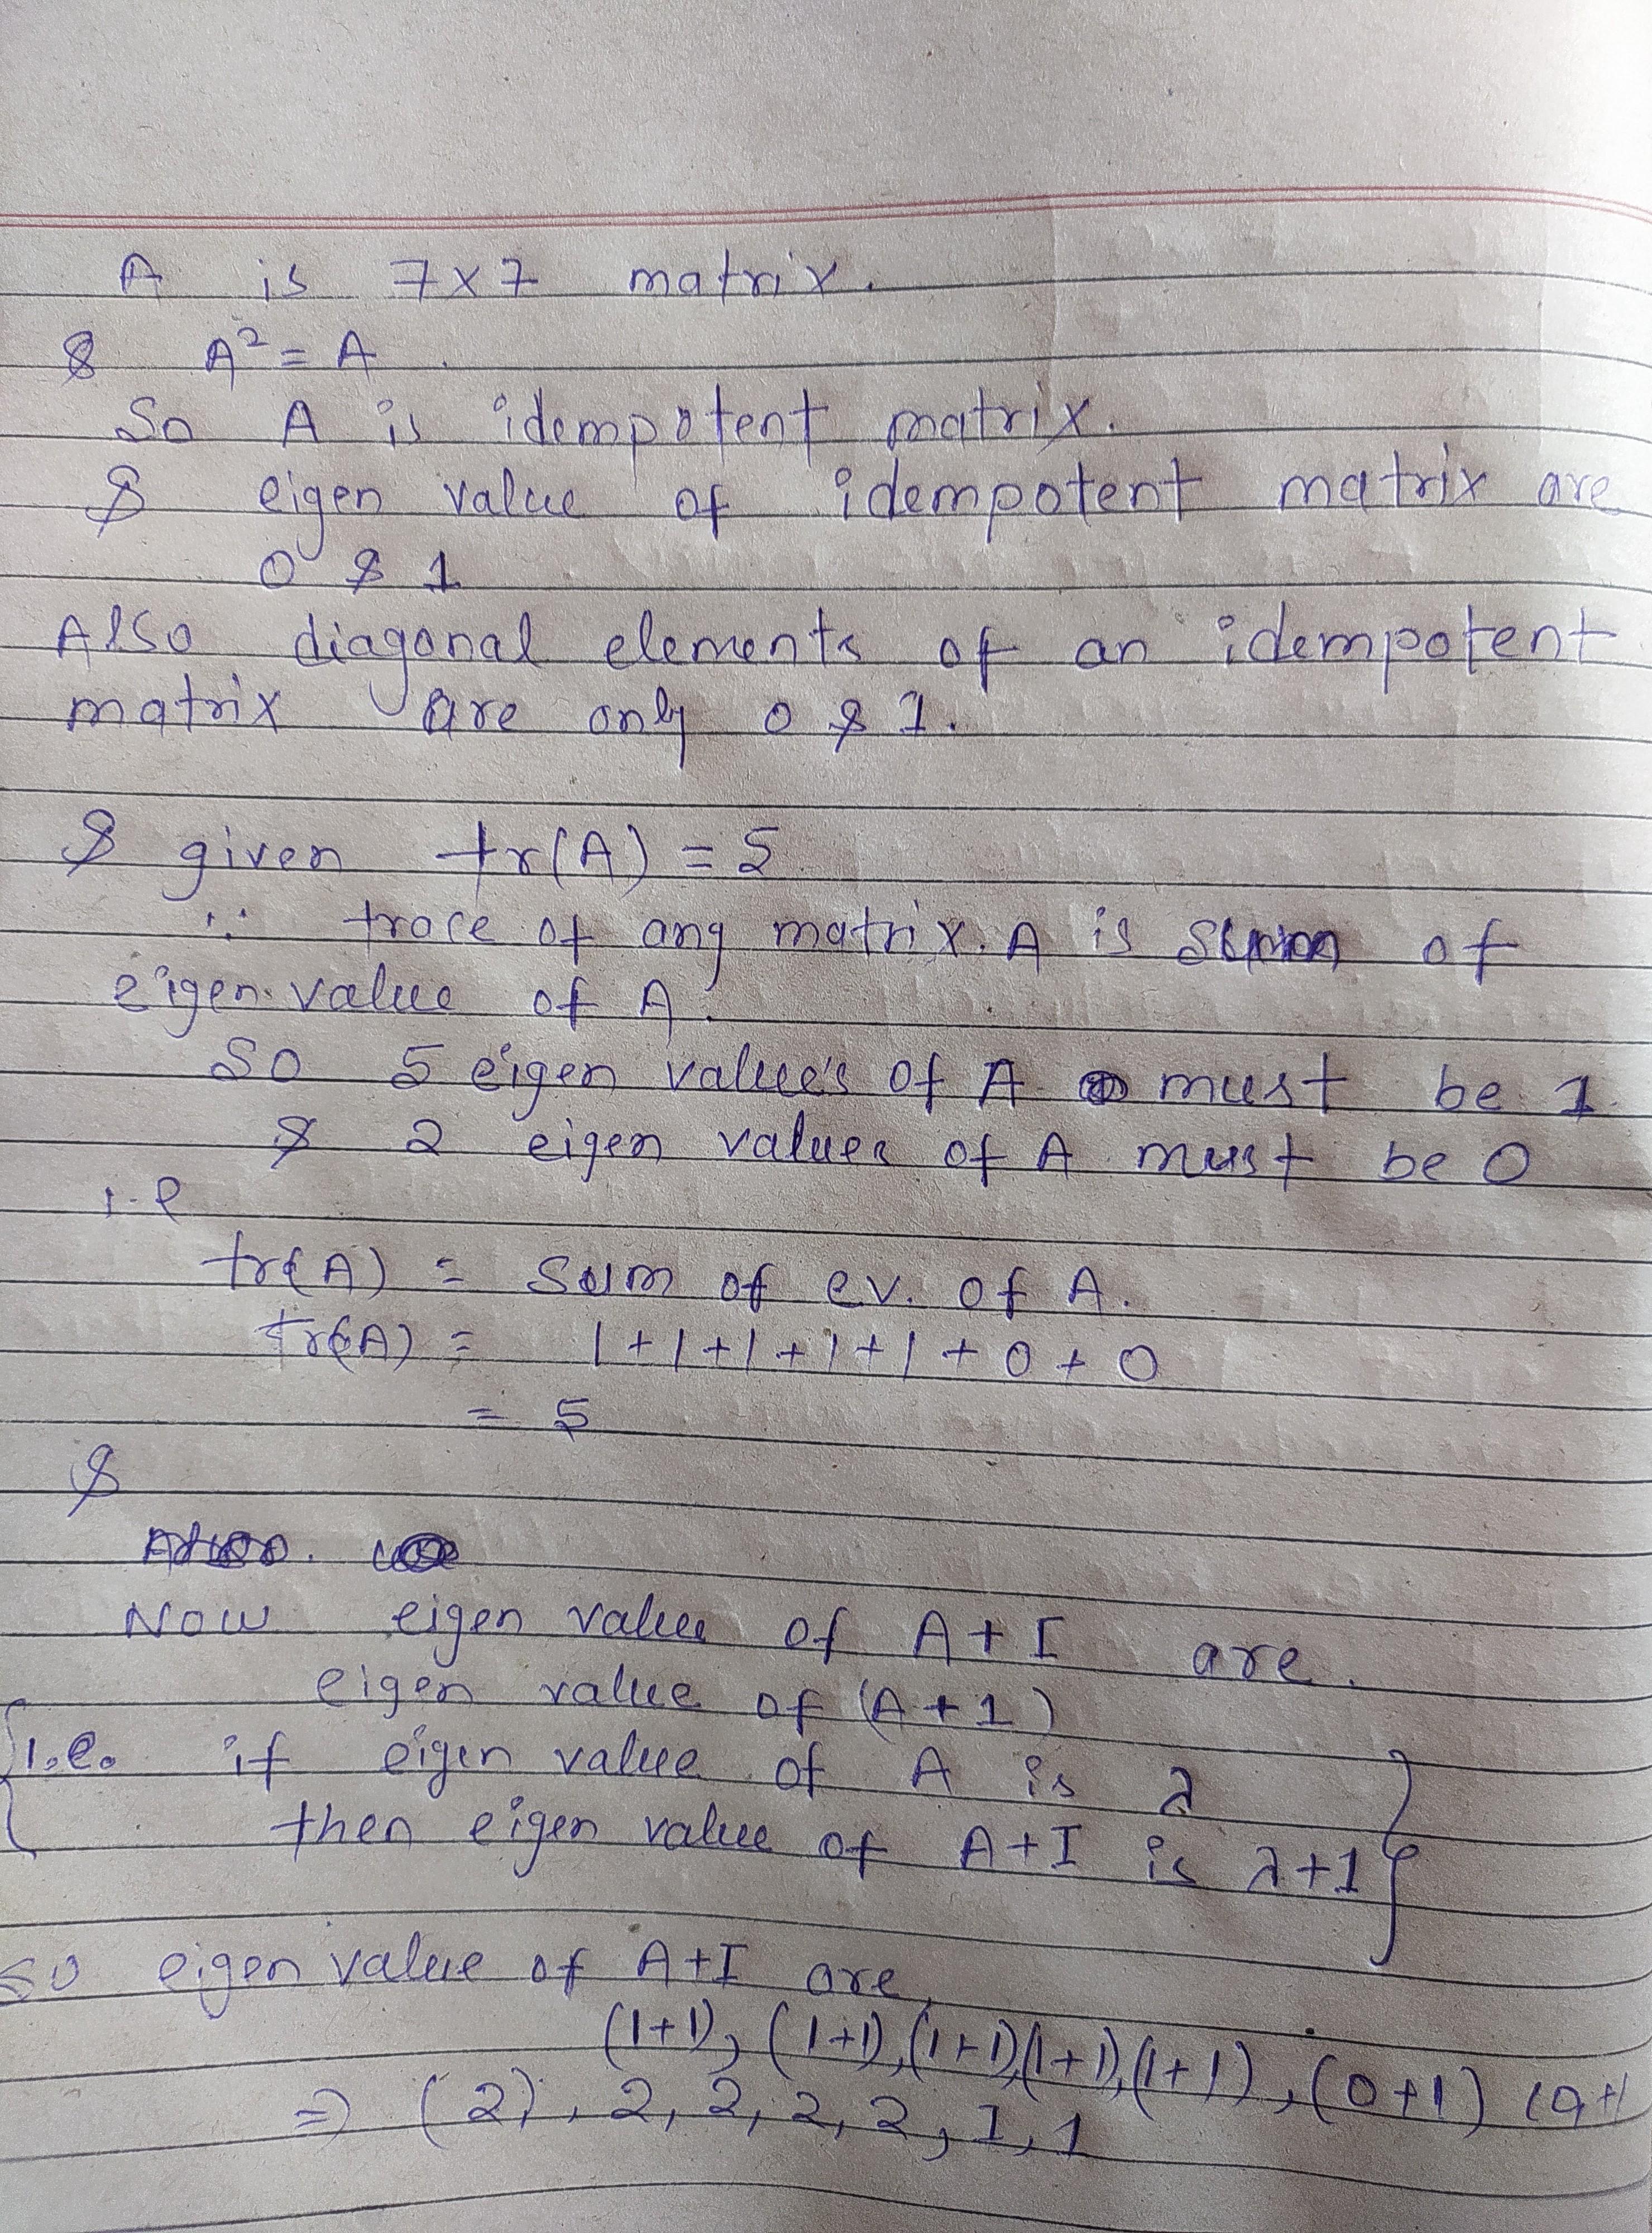 A is 7x7 matrix.
& A² = A.
So A is idempotent matrix.
& eigen value of idempotent matrix are
0 & 1
Also diagonal elements of an idempotent
matrix are only 0 & 1.
& given tr(A) = 5
∵ trace of any matrix. A is sum of
eigen value of A.
So 5 eigen value's of A must be 1
& 2 eigen values of A must be 0
i.e
tr(A) = Sum of ev. of A.
tr(A) = 1+1+1+1+1+0+0
= 5
&
Now eigen value of A+I are.
eigen value of (A+1)
i.e. if eigen value of A is λ
then eigen value of A+I is λ+1
so eigen value of A+I are,
(1+1), (1+1), (1+1), (1+1), (1+1), (0+1) (0+1
⇒ (2), 2, 2, 2, 2, 1, 1